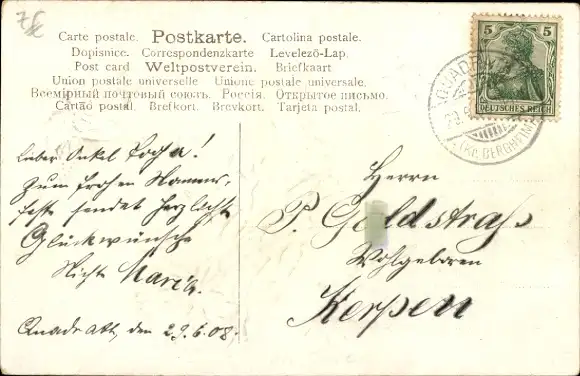 7€
Carte postale. Postkarte. Cartolina postale.
Dopisnice. Correspondenzkarte Levelező-Lap.
Post card Weltpostverein. Briefkaart
Union postale universelle. Unione postale universale.
Всемірный почтовый союзъ. Россія. Открытое письмо.
Cartão postal. Brefkort. Brevkort. Tarjeta postal.
5 5
DEUTSCHES REICH
QUADRATH
(KR. BERGHEIM)
Lieber Onkel
Zum frohen Namens-
feste sendet herzlichste
Glückwünsche
Nichte Maria.
Quadrath, den 29.6.08.
Herrn
P. Goldstraß
Wohlgeboren
Kerpen